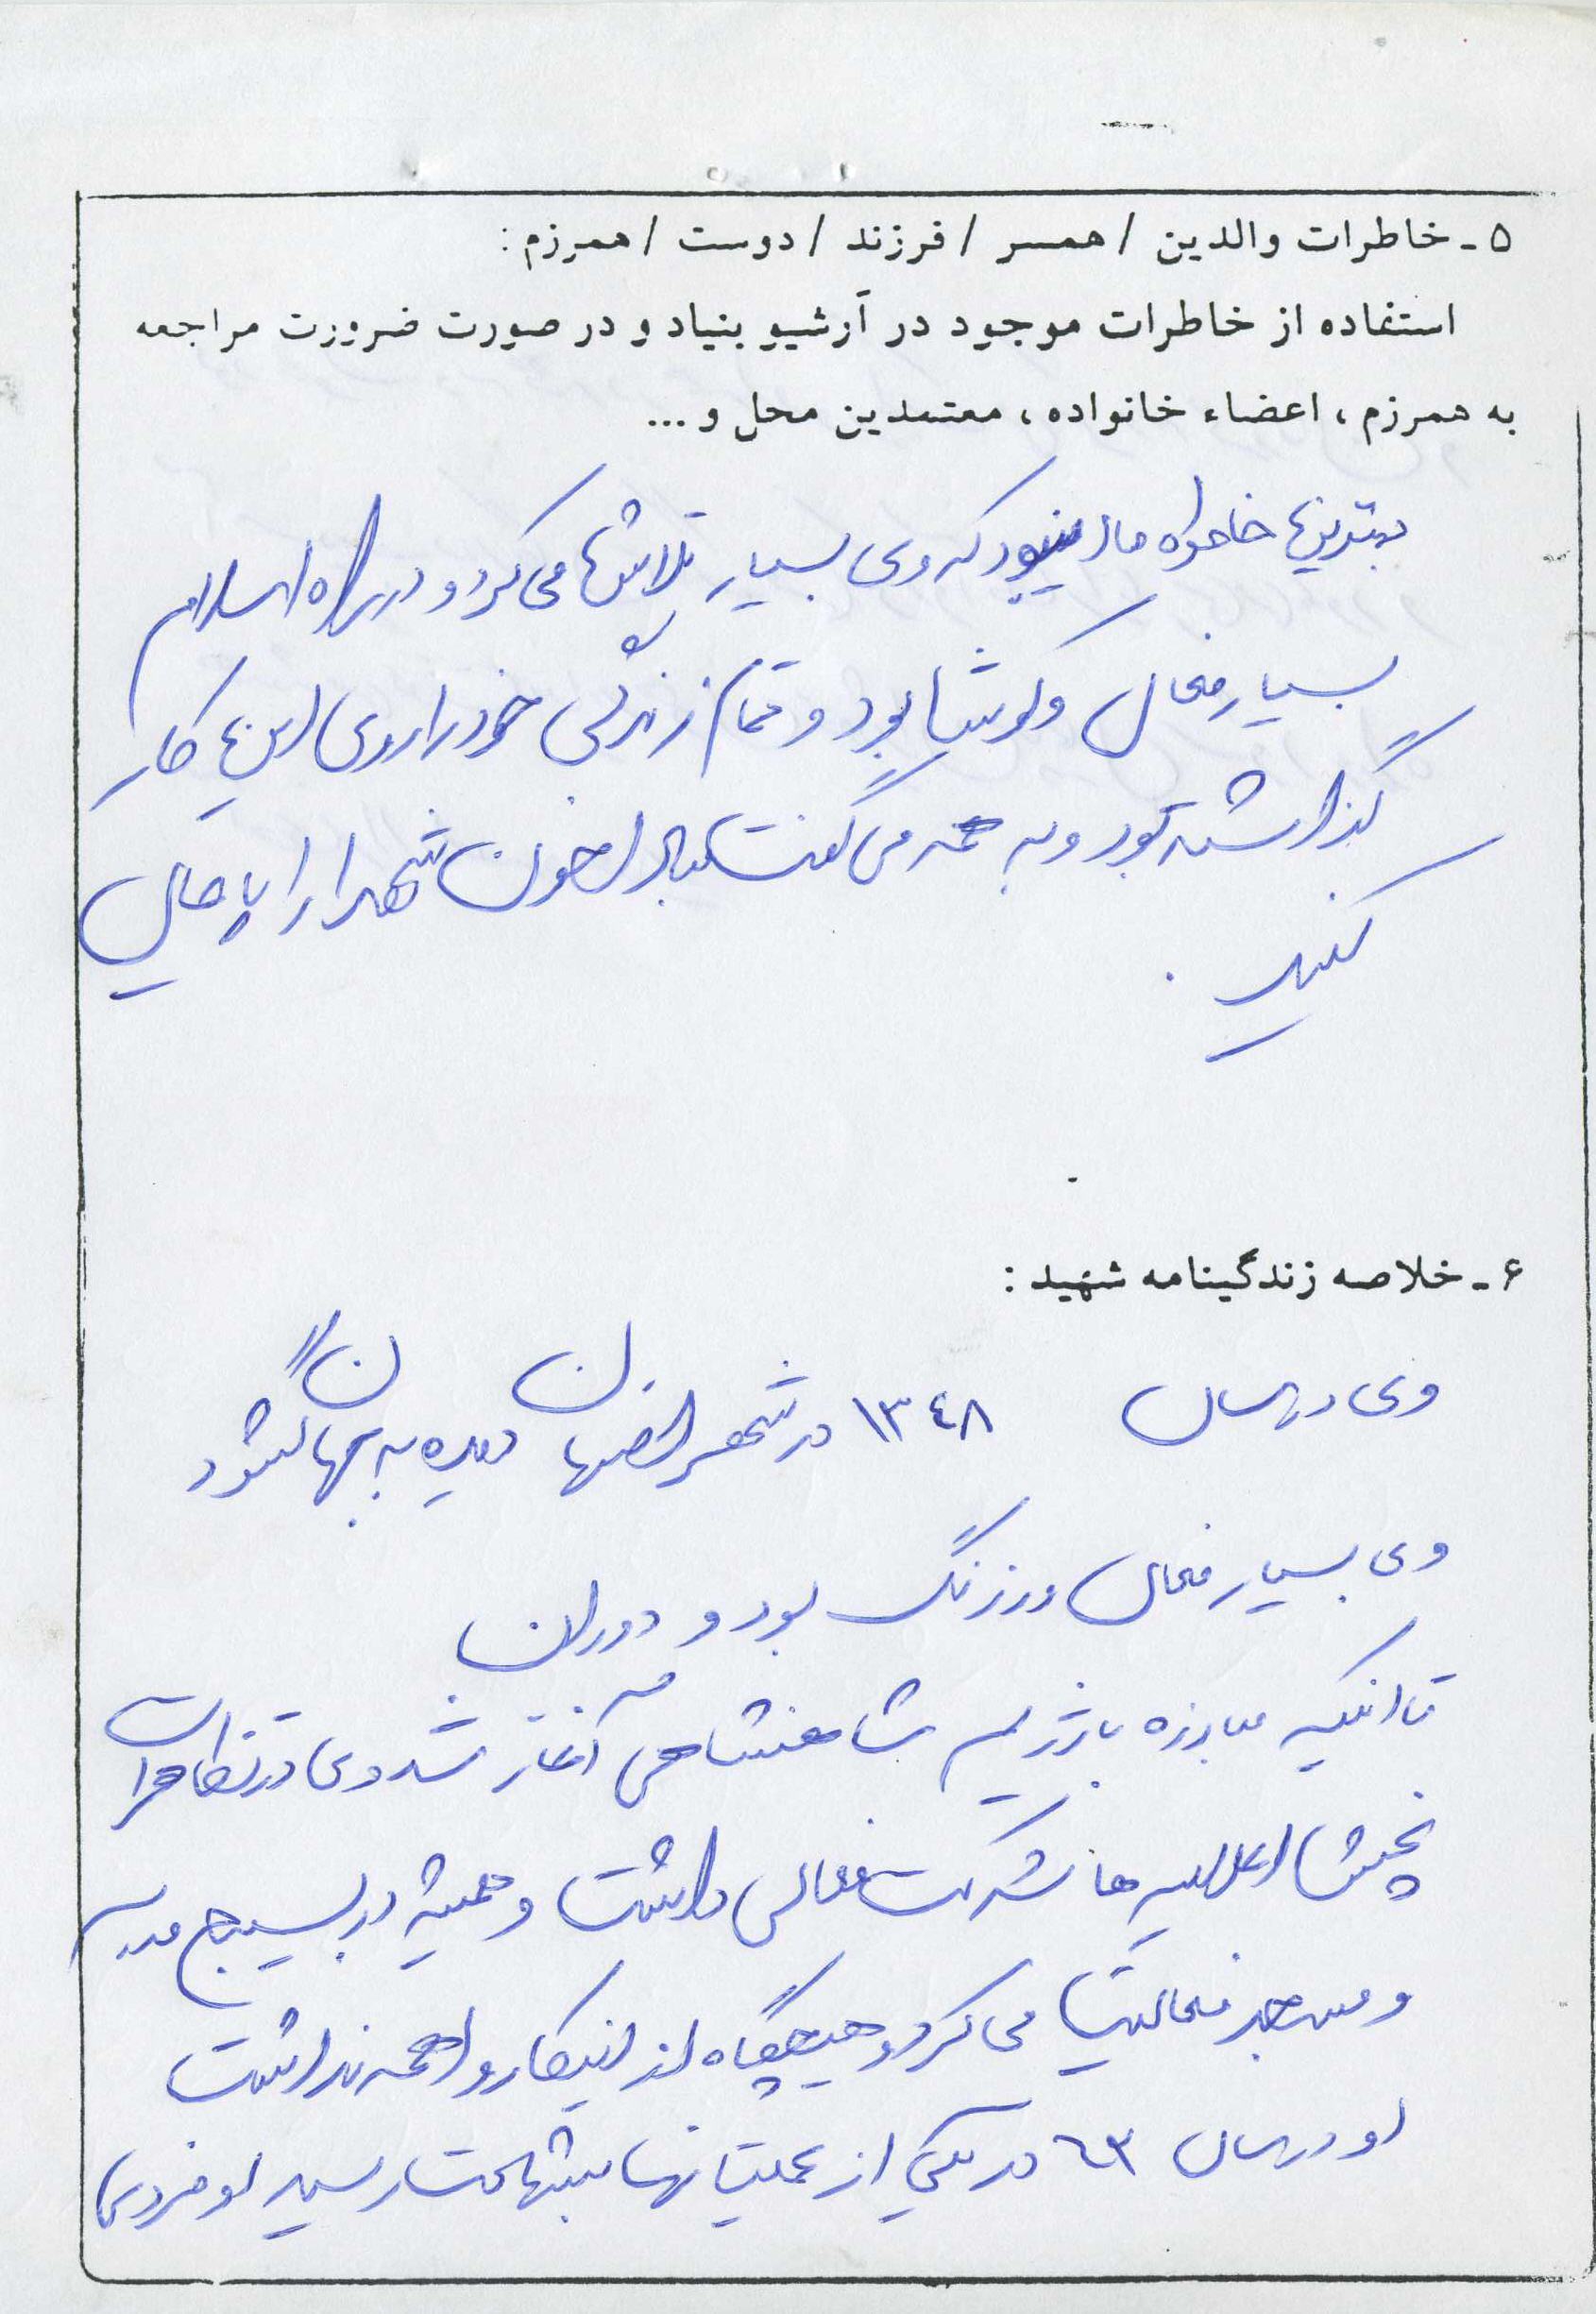 ۵ - خاطرات والدین / همسر / فرزند / دوست / همرزم :
استفاده از خاطرات موجود در آرشیو بنیاد و در صورت ضرورت مراجعه
به همرزم ، اعضاء خانواده ، معتمدین محل و ...
بهترین خاطره ما این بود که وی بسیار تلاش می کرد و در راه اسلام
بسیار فعال و کوشا بود و تمام زندگی خود را روی این کار
گذاشته بود و به همه می گفت مبادا خون شهدا را پامال
کنید .
۶ - خلاصه زندگینامه شهید :
وی در سال ۱۳۴۸ در شهر اصفهان دیده به جهان گشود
وی بسیار فعال و زرنگ بود و دوران
تا اینکه مبارزه با رژیم شاهنشاهی آغاز شد وی در تظاهرات
پخش اعلامیه ها شرکت فعالی داشت و همیشه در بسیج مدرسه
و مسجد فعالیت می کرد و هیچگاه از اینکار واهمه نداشت
او در سال ۶۳ در یکی از عملیاتها بشهادت رسید او فردی